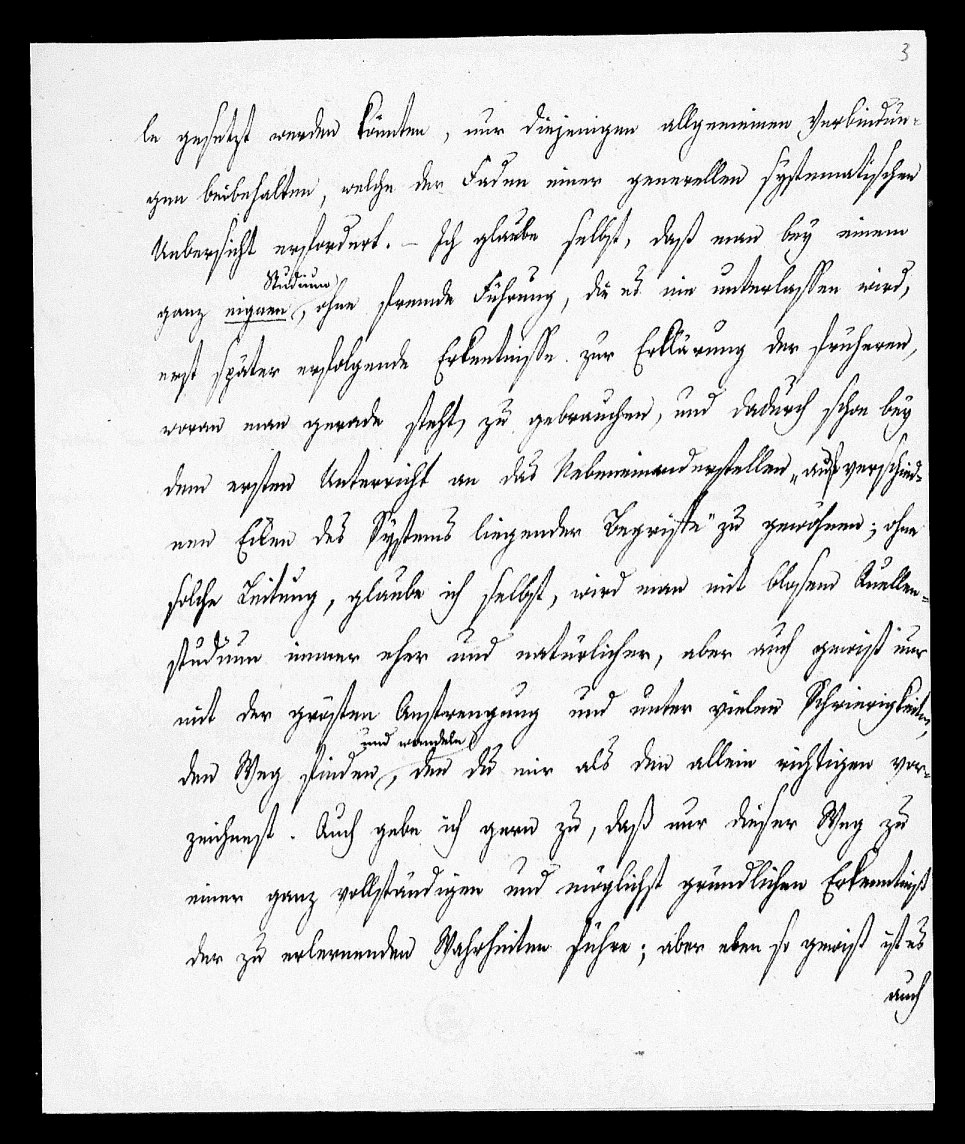 3
le gesetzt werden könnten, nur diejenigen allgemeinen Verbindun-
gen beibehalten, welche der Faden einer generellen systematischen
Uebersicht erfordert. – Ich glaube selbst, daß man bey einem
Studium
ganz eignen, ohne fremde Führung, die es nie unterlassen wird,
erst später erfolgende Erkentnisse zur Erklärung der früheren,
woran man gerade steht, zu gebrauchen, und dadurch schon bey
dem ersten Unterricht an das Nebeneinanderstellen „auf verschied-
nen Seiten des Systems liegender Begriffe" zu gewöhnen; ohne
solche Leitung, glaube ich selbst, wird man mit blosem Quellen-
studium immer eher und natürlicher, aber auch gewiß nur
mit der grösten Anstrengung und unter vielen Schwierigkeiten,
und wandeln
den Weg finden, den du mir als den allein richtigen vor-
zeichnest. Auch gebe ich gern zu, daß nur dieser Weg zu
einer ganz vollständigen und möglichst gründlichen Erkenntniß
der zu erlernenden Wahrheiten führe; aber eben so gewiß ist es
auch